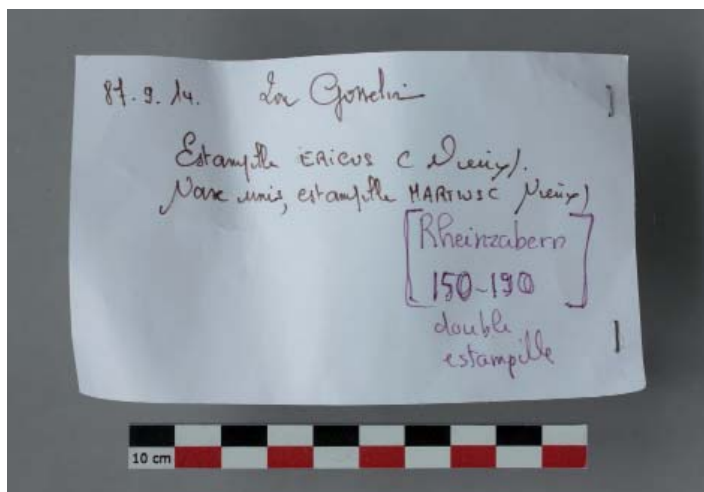 87.9.14. Don Gosselin
Estampille ERICUS (Vieux).
Vase unis, estampille MARTIUSC (Vieux)
[Rheinzabern
150-190]
double
estampille
10 cm